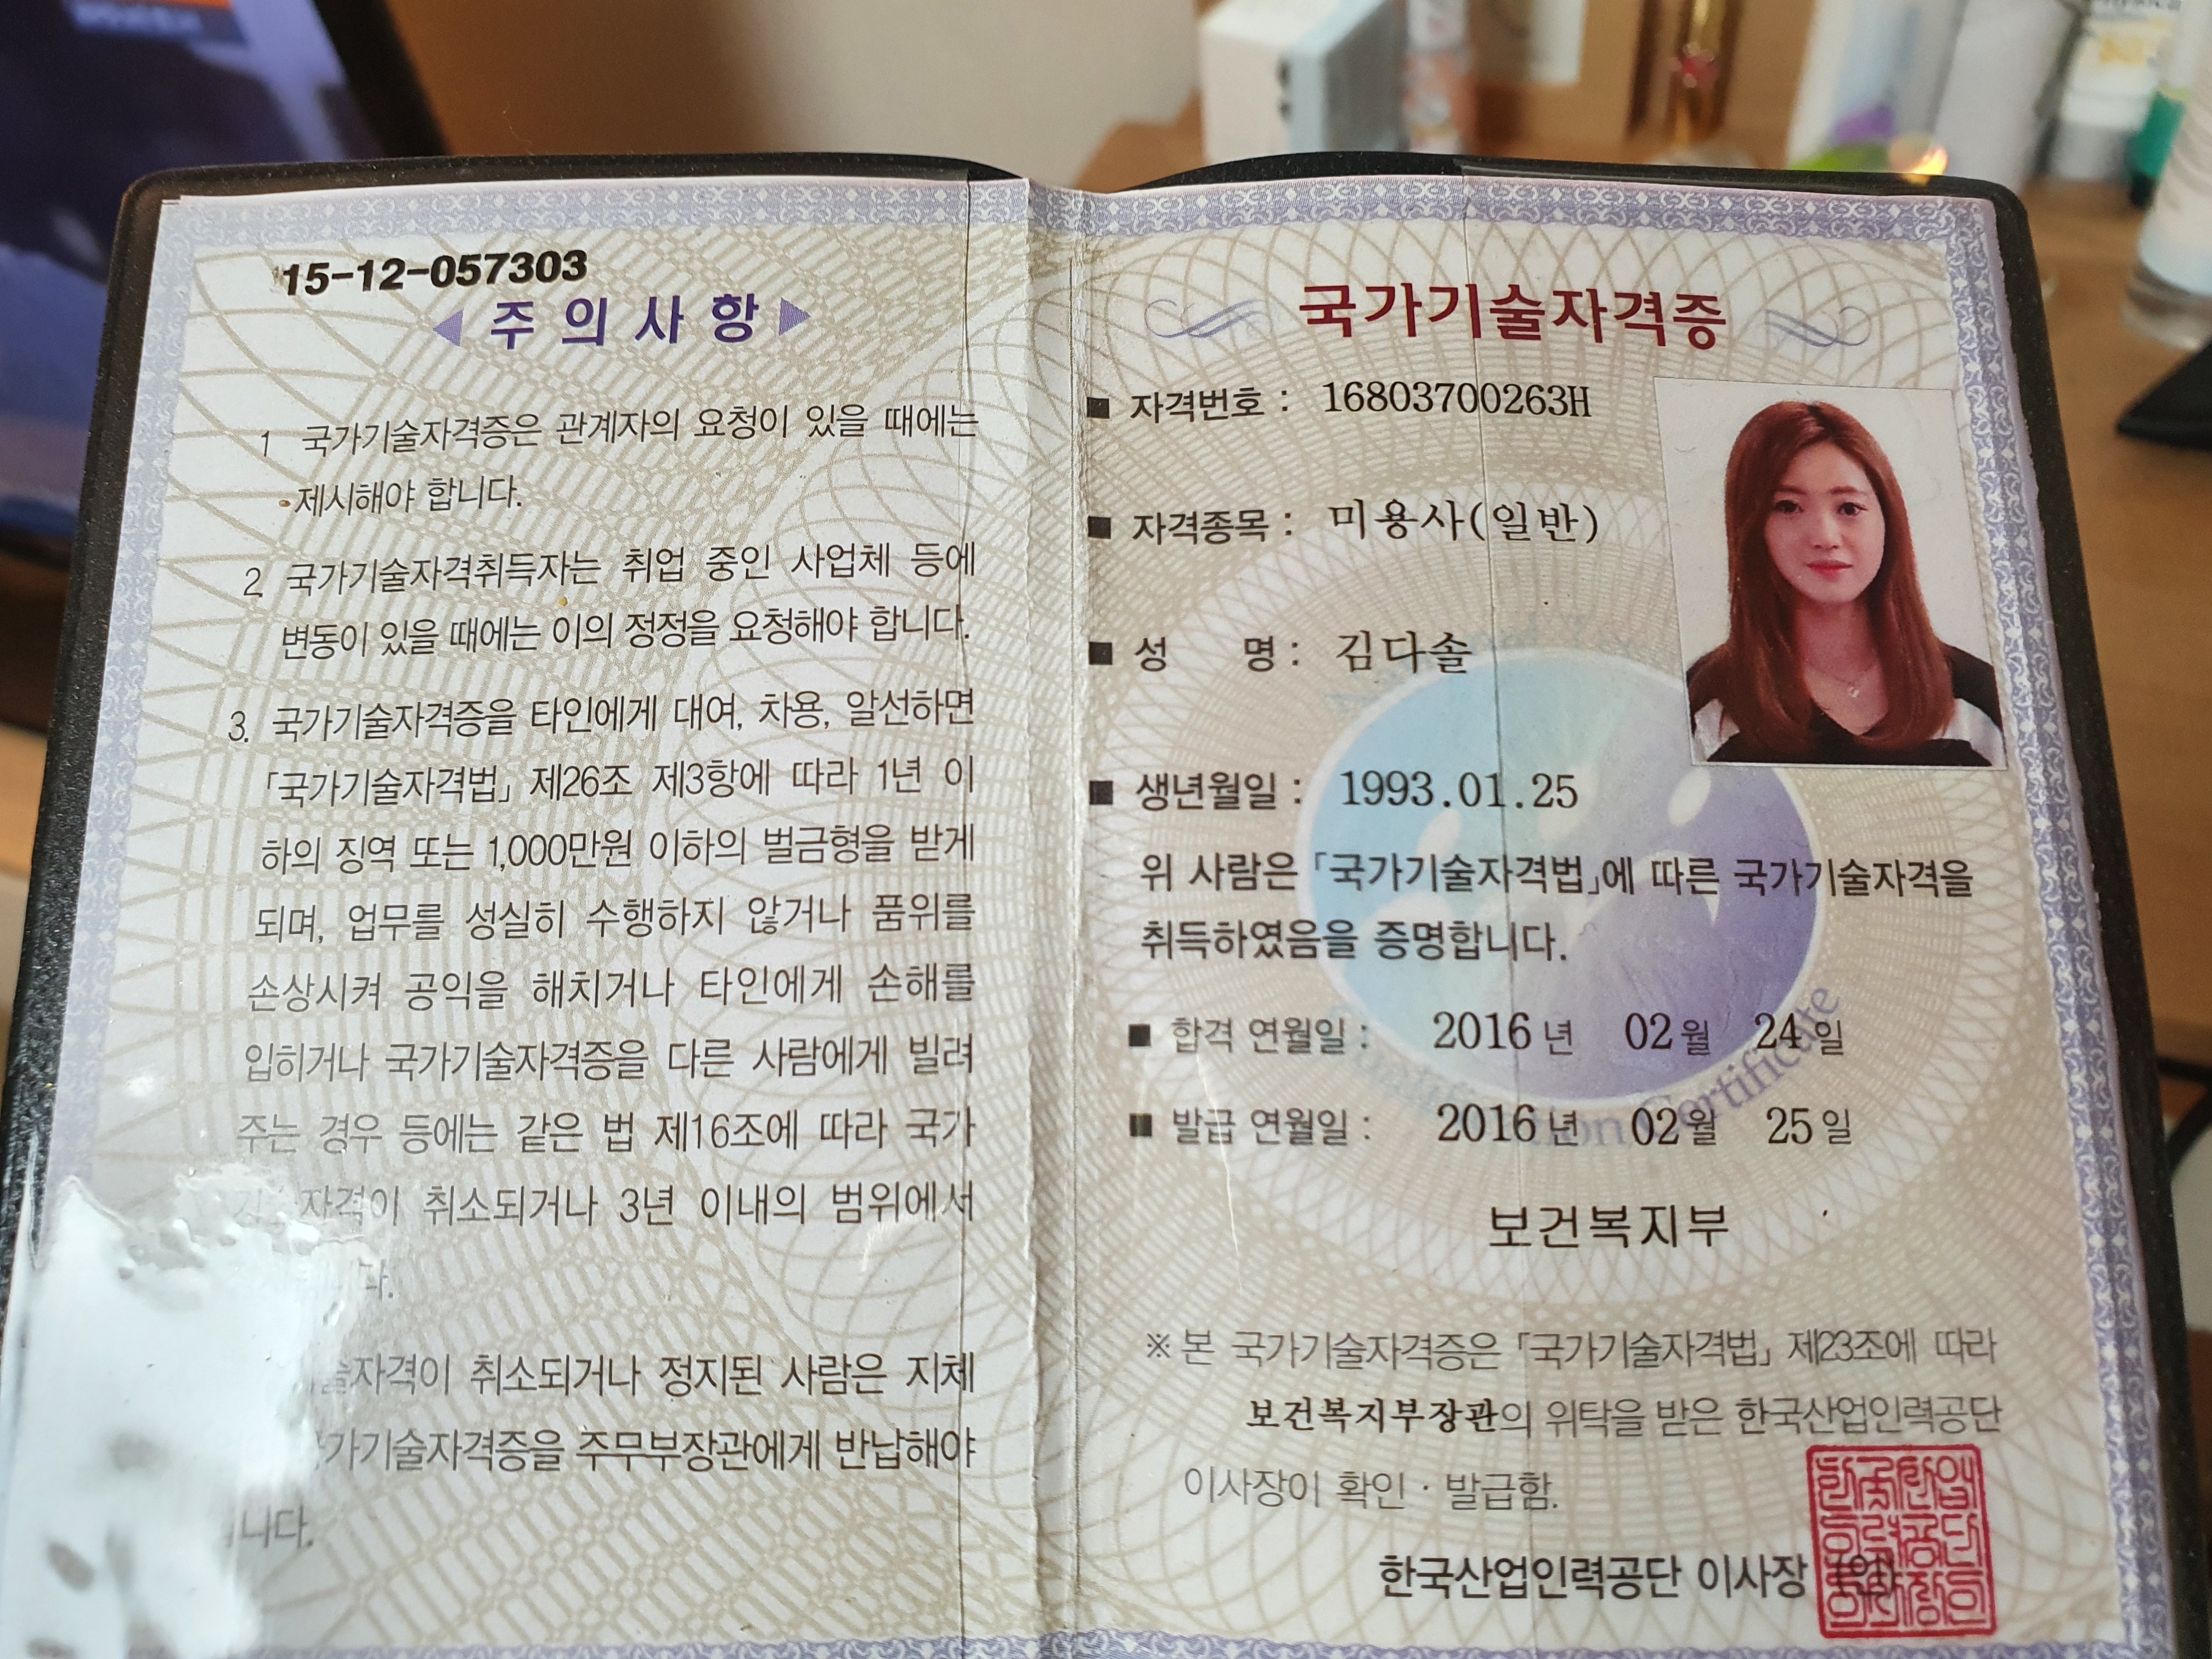 15-12-057303
◀ 주 의 사 항 ▶
1 국가기술자격증은 관계자의 요청이 있을 때에는
제시해야 합니다.
2. 국가기술자격취득자는 취업 중인 사업체 등에
변동이 있을 때에는 이의 정정을 요청해야 합니다.
3. 국가기술자격증을 타인에게 대여, 차용, 알선하면
「국가기술자격법」 제26조 제3항에 따라 1년 이
하의 징역 또는 1,000만원 이하의 벌금형을 받게
되며, 업무를 성실히 수행하지 않거나 품위를
손상시켜 공익을 해치거나 타인에게 손해를
입히거나 국가기술자격증을 다른 사람에게 빌려
주는 경우 등에는 같은 법 제16조에 따라 국가
취소되거나 3년 이내의 범위에서
취소되거나 정지된 사람은 지체
주무부장관에게 반납해야
국가기술자격증
■ 자격번호 : 16803700263H
■ 자격종목 : 미용사(일반)
■ 성 명 : 김다솔
■ 생년월일 : 1993.01.25
위 사람은 「국가기술자격법」에 따른 국가기술자격을
취득하였음을 증명합니다.
■ 합격 연월일 : 2016 년 02 월 24 일
■ 발급 연월일 : 2016 년 02 월 25 일
보건복지부
※ 본 국가기술자격증은 「국가기술자격법」 제23조에 따라
보건복지부장관의 위탁을 받은 한국산업인력공단
이사장이 확인 · 발급함.
한국산업인력공단 이사장 (인)
Certificate